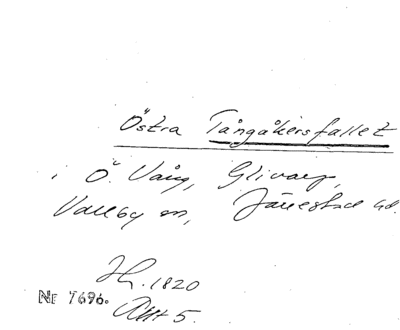 Östra Tångåkersfallet
i Ö. Vång, Glivarp,
Vallby sn, Järrestad hd.
H. 1820
Nr 7696.
Akt 5.